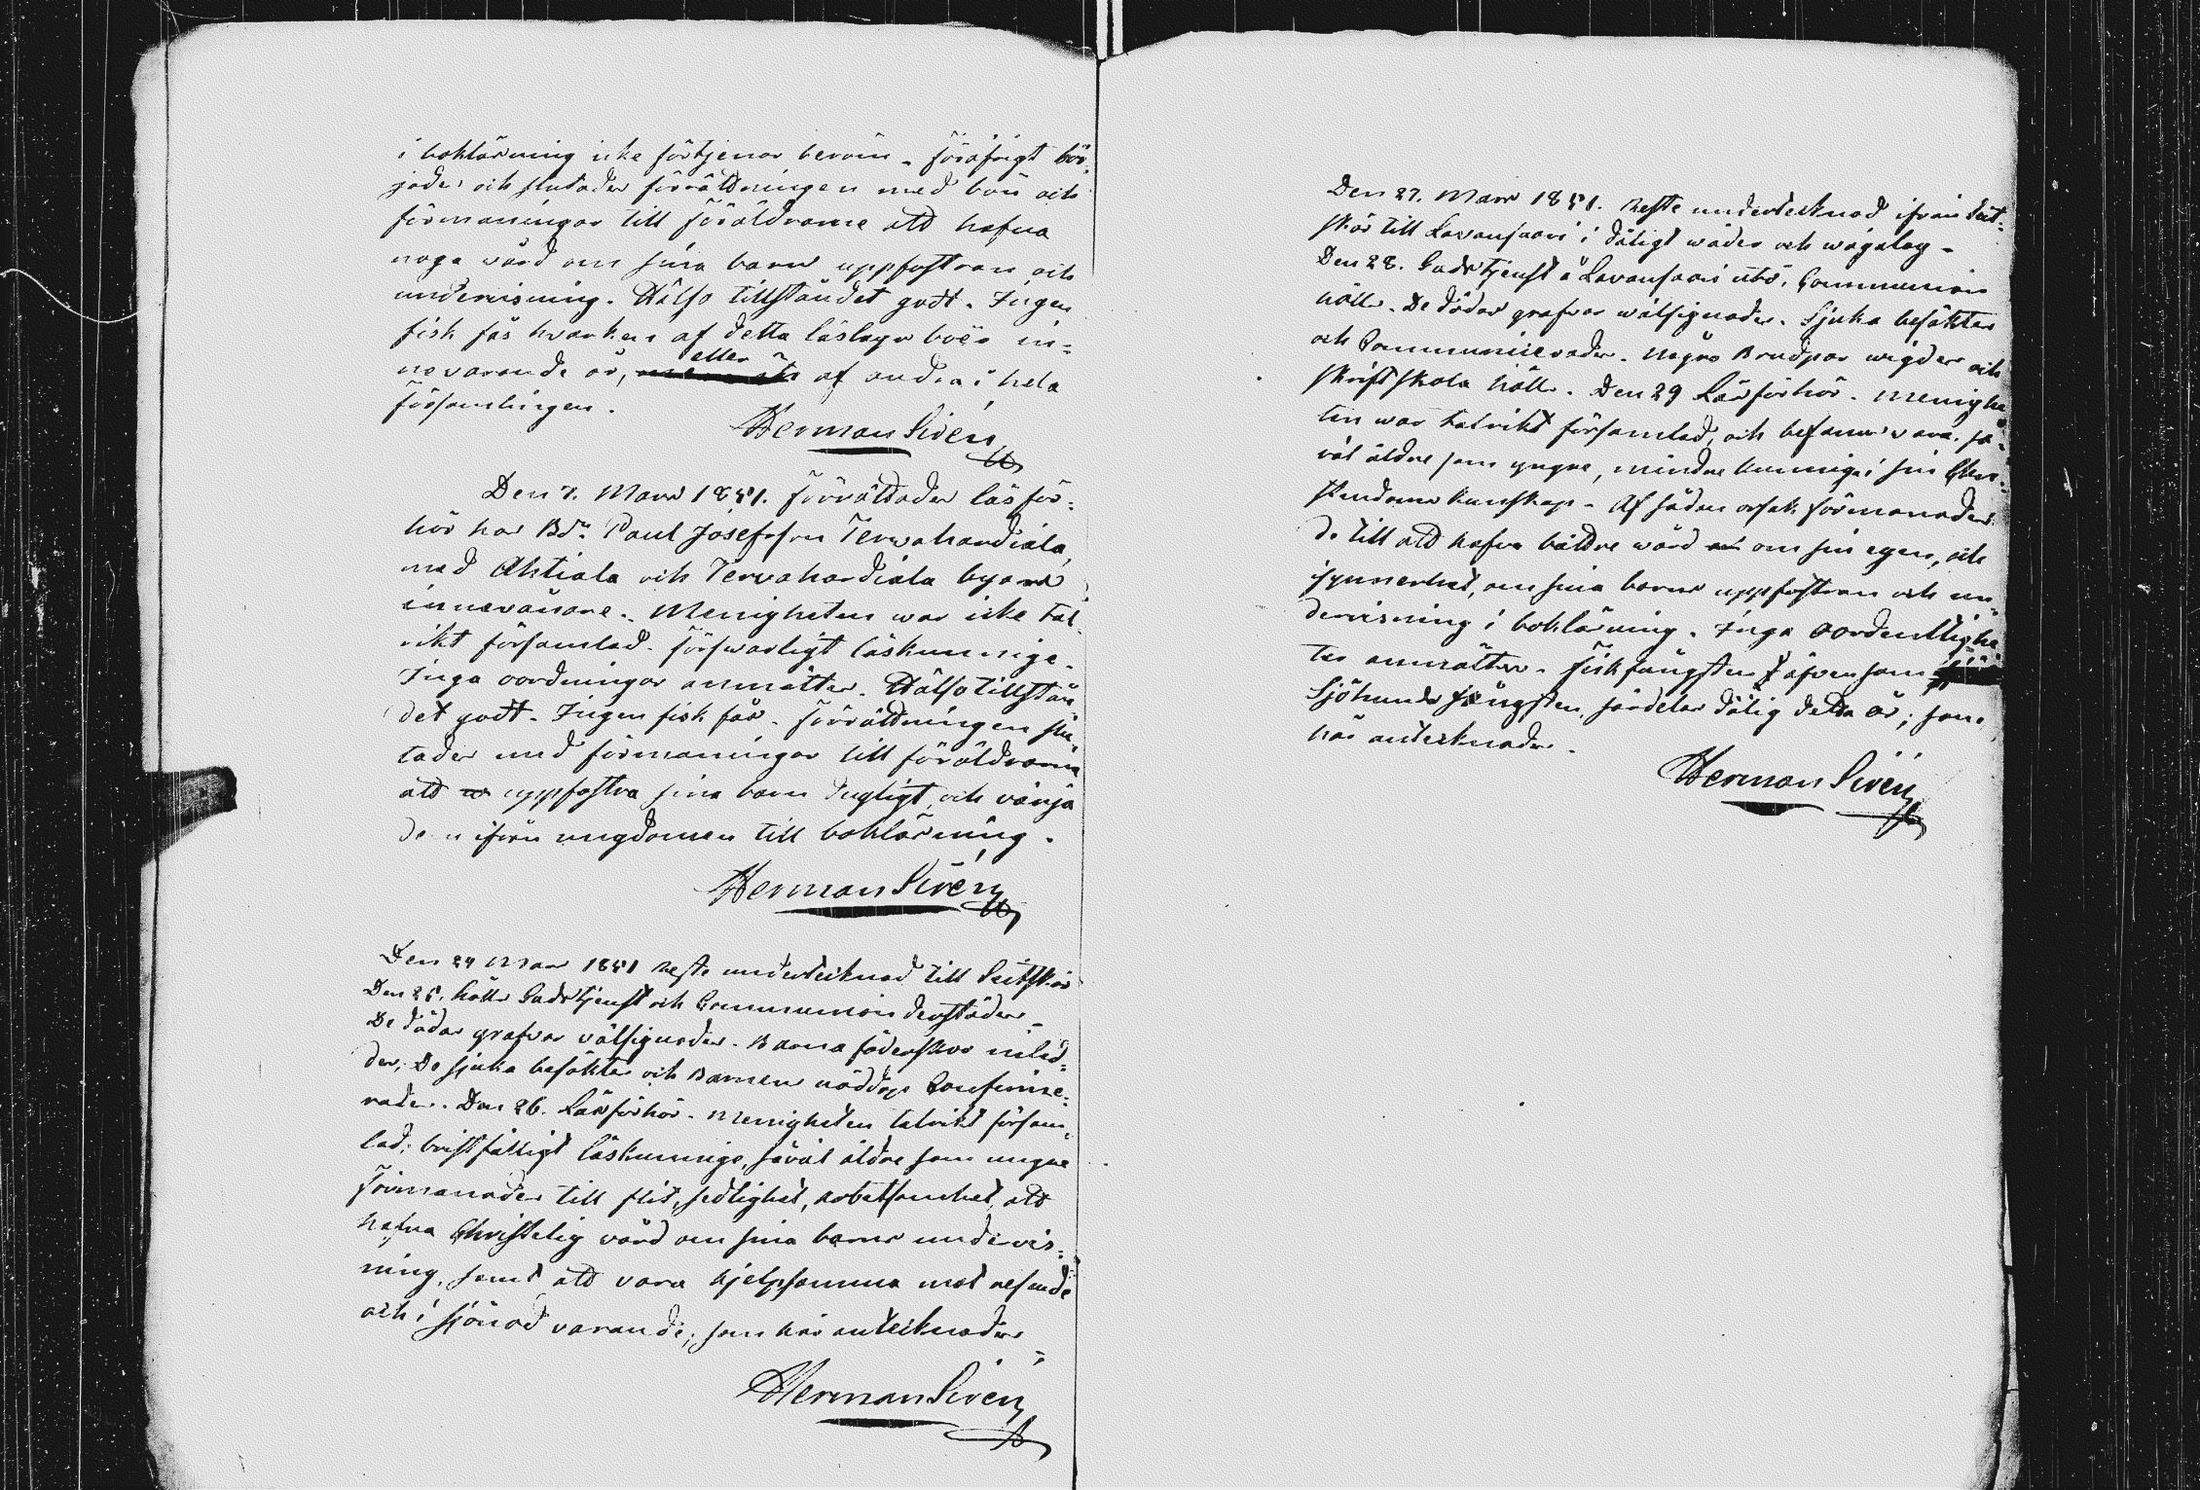 i boklärning icke förtjenar beröm. Föröfrigt bör-
jades och slutades förrättningen med bön och
förmaningar till föräldrarne att hafva
noga vård om sina barns uppfostran och
undervisning. Hälso tillståndet godt. Ingen
fisk fås hvarken af detta läslags boer in=
nevarande år, eller af andra i hela
församlingen.
Herman Sirén
Den 7. Mars 1851. Förrättades läsför=
hör hos Bd. Paul Josefsson Terwahardiala,
med Ahtiala och Tervahardiala byars
innevånare. Menigheten war icke tal-
rikt församlad. Försvarligt läskunnige.
Inga oordningar anmältes. Hälsotillstån
det godt. Ingen fisk fås. Förrättningen slu-
tades med förmaningar till föräldrarne
att uppfostra sina barn dugligt, och vänja
dem ifrån ungdomen till boklärning.
Herman Sirén
Den 24 Mars 1851 reste undertecknad till Seitskär
Den 25. hölls Gudstjenst och Communion derstädes.
De dödas grafvar välsignades. Barna föderskor inled=
des; De sjuka besöktes och Barnens nöddop Confirme=
rades. Den 26. Läsförhör. Menigheten talrikt försam-
lad; bristfälligt läskunnige, såväl äldre som yngre
Förmanades till flit, sedlighet, arbetsamhet, att
hafva Christelig vård om sina barns undervis=
ning, samt att vara hjelpsamma mot resande
och i sjönöd varande; som här antecknades.
Herman Sirén
Den 27. Mars 1851. Reste undertecknad ifrån Seit=
skär till Lavansaari i dåligt wäder och wägalag.
Den 28. Gudstjenst å Lavansaari Communion
hölls. De dödas grafvar wälsignades. Sjuka besöktes
och Communicerades. Några Brudpar wigdes och
skriftskola hölls. Den 29 Läsförhör. Menighe
ten war talrikt församlad, och befanns vara, så=
väl äldre som yngre, mindre kunnige i sin Chri=
stendoms kunskap. Af sådan orsak förmanades
de till att hafva bättre wård om sin egen, och
synnerhet, om sina barns uppfostran och un=
dervisning i boklärning. Inga oordentlighe
ter anmältes. Fiskfångsten äfvensom
Sjöhunds fångsten, särdeles dålig detta år; som
här antecknades.
Herman Sirén